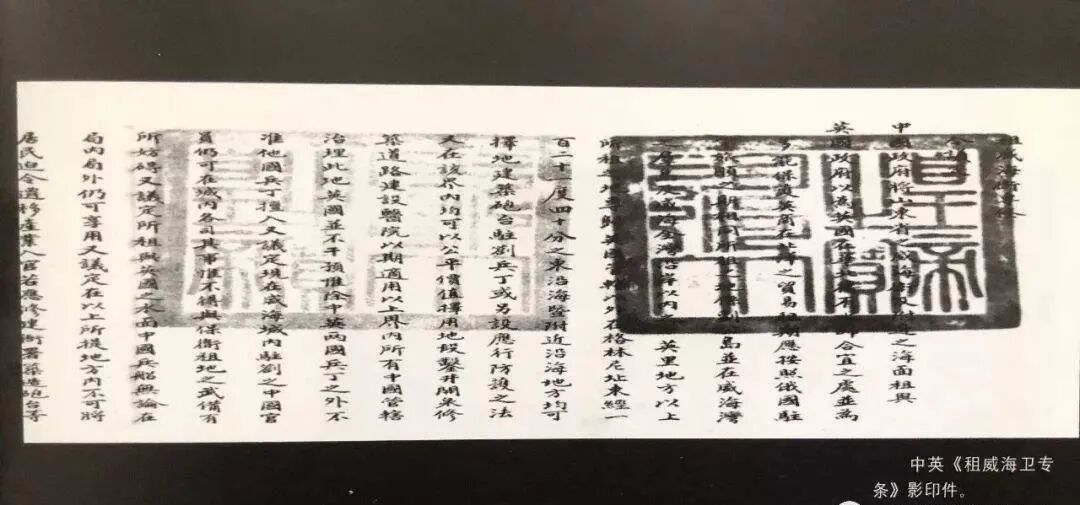 租威海衛專條
今議定
中國政府將山東省之威海衛及附近之海面租與
英國政府以為英國在華北得有水師合宜之處並為
多能保護英商在北洋之貿易租期應按照俄國駐
守旅順之期相同所租之地係劉島並在威海灣
之羣島及威海全灣沿岸以內之英里地方以上
所租之地專歸英國管轄以外在格林尼址東經一
百二十一度四十分之東沿海暨附近沿海地方均可
擇地建築砲台駐劄兵丁或另設應行防護之法
又在該界內均可以公平價值擇用地段鑿井開泉修
築道路建設醫院以期適用以上界內所有中國管轄
治理此地英國並不干預惟除中英兩國兵丁之外不
准他國兵丁擅入又議定現在威海城內駐劄之中國官
員仍可在城內各司其事惟不得與保衛租地之武備有
所妨碍又議定所租與英國之水面中國兵船無論在
局內局外仍可享用又議定在以上所提地方內不可將
居民迫令遷移產業入官若應修建衙署築造砲台等
中英《租威海卫专
条》影印件。